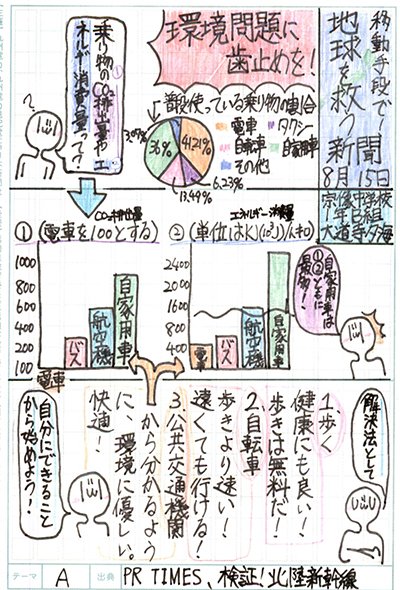 移動手段で
地球を救う新聞
8月15日
環境問題に
歯止めを!
乗り物の①CO₂排出量や②エネルギー消費量って?
?
普段使っている乗り物の割合
電車
タクシー
自転車
自家用車
その他
3.09%
36%
41.21%
6.23%
13.49%
CO₂排出量
①(電車を100とする)
1000
800
600
400
200
100
電車
バス
航空機
自家用車
エネルギー消費量
②(単位はKJ(10³J)/人キロ)
2400
2000
1600
800
400
電車
バス
航空機
自家用車
自家用車は
①②ともに
最多!
解決法として
1.歩く
健康にも良い!
歩きは無料だ!
2.自転車
歩きより速い!
遠くても行ける!
3.公共交通機関
①②から分かるよう
に、環境に優しい。
快適!
自分にできること
から始めよう!
テーマ
A
出典
PR TIMES、検証!北陸新幹線